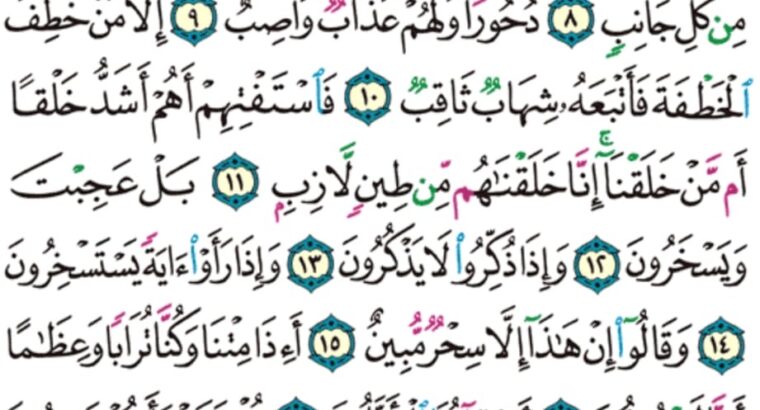 مِن كُلِّ جَانِبٍ ٨ دُحُورًا وَلَهُمْ عَذَابٌ وَاصِبٌ ٩ إِلَّا مَنْ خَطِفَ
ٱلْخَطْفَةَ فَأَتْبَعَهُۥ شِهَابٌ ثَاقِبٌ ١٠ فَٱسْتَفْتِهِمْ أَهُمْ أَشَدُّ خَلْقًا
أَم مَّنْ خَلَقْنَآ ۚ إِنَّا خَلَقْنَٰهُم مِّن طِينٍ لَّازِبٍۭ ١١ بَلْ عَجِبْتَ
وَيَسْخَرُونَ ١٢ وَإِذَا ذُكِّرُوا۟ لَا يَذْكُرُونَ ١٣ وَإِذَا رَأَوْا۟ ءَايَةً يَسْتَسْخِرُونَ
١٤ وَقَالُوٓا۟ إِنْ هَٰذَآ إِلَّا سِحْرٌ مُّبِينٌ ١٥ أَءِذَا مِتْنَا وَكُنَّا تُرَابًا وَعِظَٰمًا